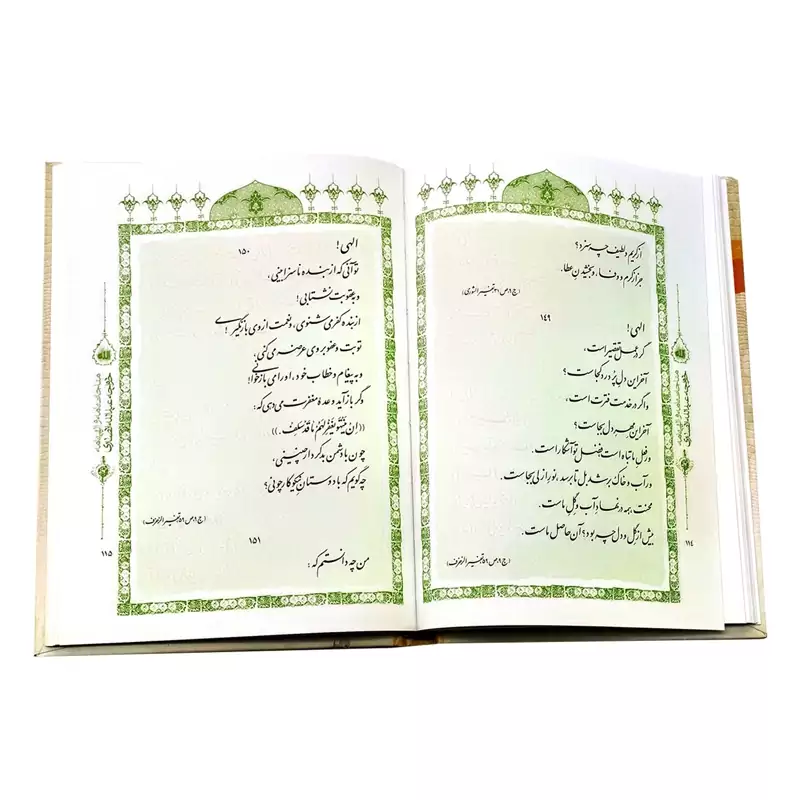 از کریم و لطیف چه سزد؟
جز از کرم و وفا، و بخشیدن عطا.
(ج ۹، ص ۳۱، تفسیر الشوری)
۱۴۹
الهی!
گر در عمل تقصیر است،
آخر این دل پُر درد کجاست؟
و اگر در خدمت فترت است،
آخر این مهر دل بجاست؟
ور فعل ما تباه است فضل تو آشکار است.
ور آب و خاک بر شد بدل تا برسد، نور ازلی بجاست.
محنت، همه در نهاد آب و گِلِ ماست.
بیش از گِل و دل چه بود؟ آن حاصل ماست.
(ج ۹، ص ۵۹، تفسیر الزخرف)
۱۱۴
۱۵۰
الهی!
تو آنی که از بنده ناسزا بینی،
و به عقوبت نشتابی!
از بنده کفر می شنوی، و نعمت از وی باز نگیری!
توبت و عفو بر وی عرضه می کنی،
و به پیغام و خطاب خود، او را می بازخوانی!
وگر باز آید وعدهٔ مغفرت می دهی که:
((اِن یَنتَهُوا یُغفَر لَهُم ما قَد سَلَفَ.))
چون با دشمن بدکردار چنینی،
چه گویم که با دوستان نیکوکار چونی؟
(ج ۹، ص ۵۹، تفسیر الزخرف)
۱۵۱
من چه دانستم که:
۱۱۵